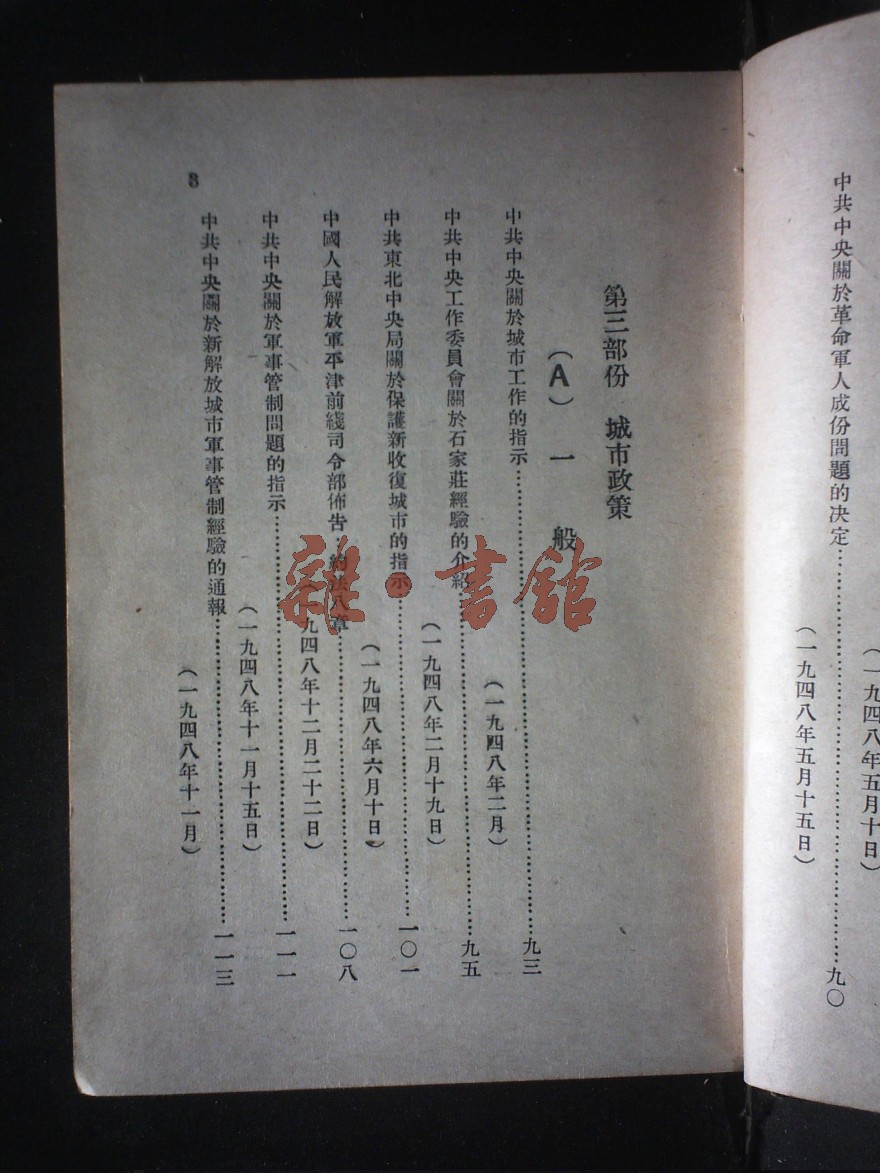 (一九四八年五月十日)
中共中央關於革命軍人成份問題的决定……九〇
(一九四八年五月十五日)
第三部份 城市政策
(A) 一 般
中共中央關於城市工作的指示……九三
(一九四八年二月)
中共中央工作委員會關於石家莊經驗的介紹……九五
(一九四八年二月十九日)
中共東北中央局關於保護新收復城市的指示……一〇一
(一九四八年六月十日)
中國人民解放軍平津前綫司令部佈告 約法八章……一〇八
九四八年十二月二十二日)
中共中央關於軍事管制問題的指示……一一一
(一九四八年十一月十五日)
中共中央關於新解放城市軍事管制經驗的通報……一一三
(一九四八年十一月)
8
雜·書館